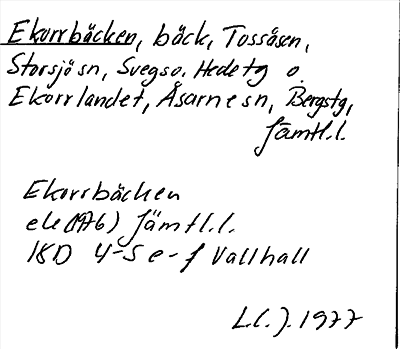 Ekorrbäcken, bäck, Tossåsen,
Storsjö sn, Svegs o. Hede tg o.
Ekorrlandet, Åsarne sn, Bergs tg,
Jämtl.l.
Ekorrbäcken
ek (1976) Jämtl.l.
18D 4-5 e-f Vallhall
L.C.J. 1977